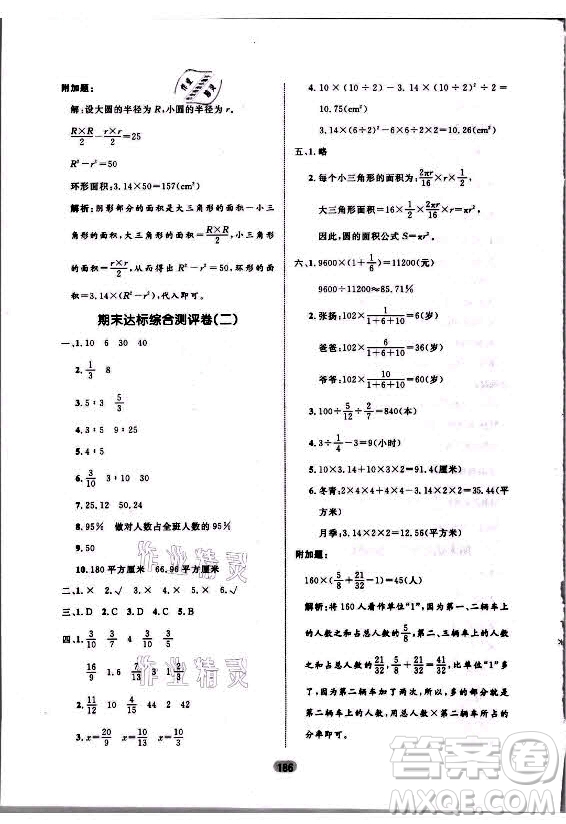 附加题：
解：设大圆的半径为 R，小圆的半径为 r。
R×R/2 − r×r/2 = 25
R²−r²=50
环形面积：3.14×50=157(cm²)
解析：阴影部分的面积是大三角形的面积－小三
角形的面积，大三角形的面积=R×R/2，小三角形
的面积=r×r/2，因此可得出 R²−r²=50，环形面
积=3.14×(R²−r²)，代入即可。
期末达标综合测评卷(二)
一、1. 10 6 30 40
2. 1/3 8
3. 5∶3 5/3
4. 3∶5 9∶25
5. 4∶5
6. 3/10 3∶10 30
7. 25.12 50.24
8. 95% 做对人数占全班人数的 95%
9. 50
10. 180 平方厘米 66.96 平方厘米
二、1. × 2. √ 3. × 4. × 5. √
三、1. D 2. C 3. D 4. D
四、1. 3/10 3/10 2 15
16/9 1.6 3/13
2. 11/12 10 24 2
3. x=20/9 x=4/15 x=5/7
4. 10×(10÷2)−3.14×(10÷2)²÷2=
10.75(cm²)
3.14×(10÷2)²−10×10÷2=10.26(cm²)
五、1. 略
2. 每个小三角形的面积为：2πr/16×r×1/2
大三角形面积=16×1/2×2πr/16×r=πr²
因此，圆的面积公式 S=πr²。
六、1. 9600×(1+1/6)=11200(元)
9600÷11200≈85.71%
2. 张扬：102×1/(1+6+10)=6(岁)
爸爸：102×6/(1+6+10)=36(岁)
爷爷：102×10/(1+6+10)=60(岁)
3. 100÷5/12÷2/7=840(本)
4. 3÷1/4−3=9(小时)
5. 10×3.14+10×3×2=91.4(厘米)
6. 冬青：2×4×4−3.14×2²=19.44(平方
厘米)
月季：3.14×2²=12.56(平方厘米)
附加题：
160×(5/8+21/32−1)=45(人)
解析：将 160 人看作单位“1”，第一、二辆车上
的人数之和占总人数的5/8，第二、三辆车上的
人数之和占总人数的21/32，5/8+21/32，比单位“1”多
了，是因为第二辆车加了两次，所以多的就是
第二辆车上的人数，用总人数×第二辆车所占的
分率即可。
186
作业精灵
作业精灵
答案圈
MXQE.COM